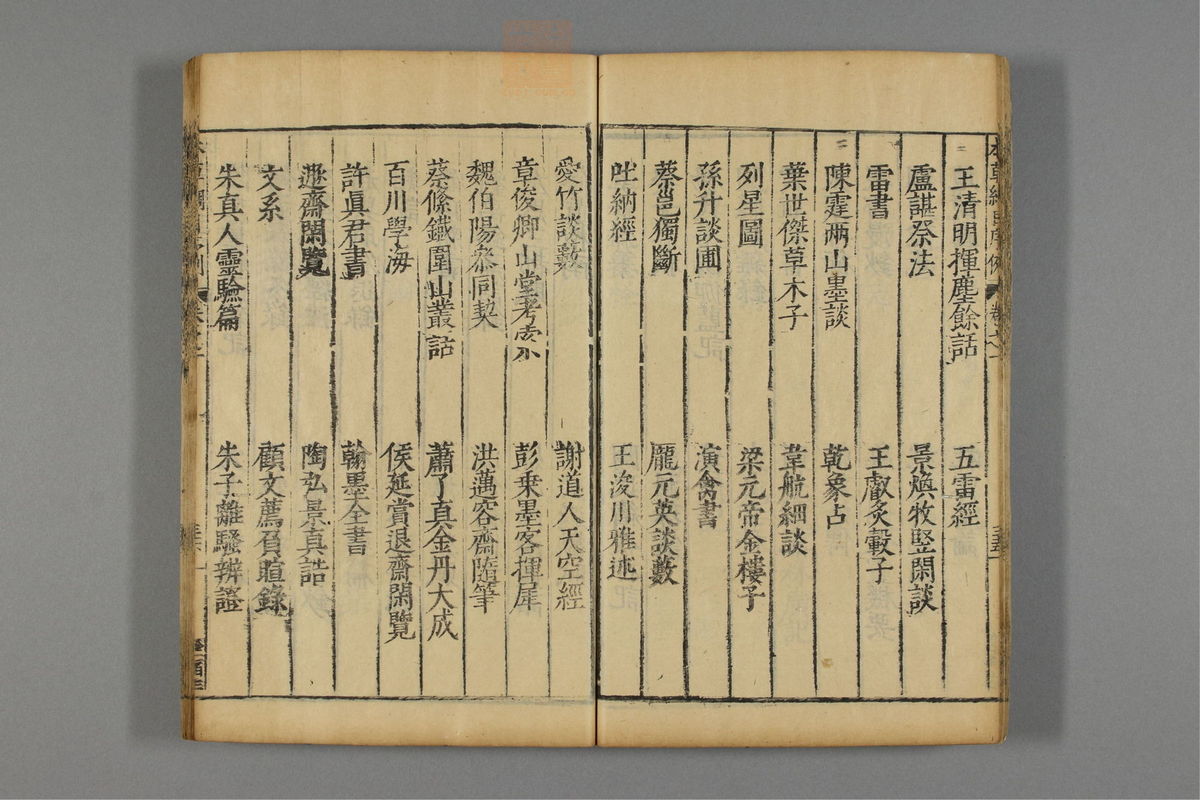 王清明揮塵餘話　五雷經
盧諶祭法　景煥牧竪閑談
雷書　王叡炙轂子
陳霆兩山墨談　乾象占
葉世傑草木子　韋航細談
列星圖　梁元帝金樓子
孫升談圃　演禽書
蔡邕獨斷　龐元英談藪
吐納經　王浚川雅述
愛竹談藪　謝道人天空經
章俊卿山堂考索　彭乗墨客揮犀
魏伯陽參同契　洪邁容齋隨筆
蔡絛鐵圍山叢話　蕭了真金丹大成
百川學海　侯延賞退齋閑覽
許眞君書　翰墨全書
遯齋閑覽　陶弘景真誥
文系　顧文薦負暄錄
朱真人靈驗篇　朱子離騷辨證